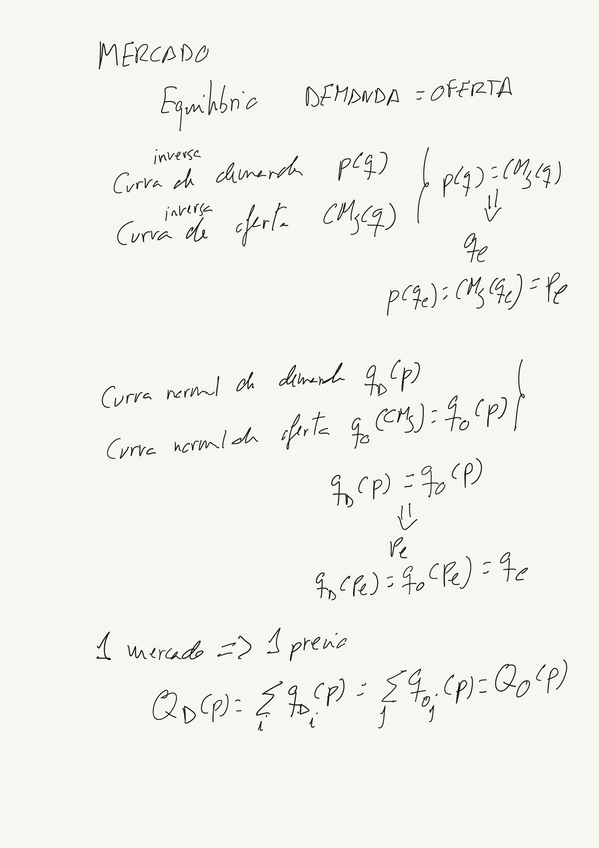 MERCADO
Equilibrio DEMANDA = OFERTA
inversa
Curva de demanda p(q) p(q) = CMg(q)
inversa
Curva de oferta CMg(q) ⇓
qe
p(qe) = CMg(qe) = Pe
Curva normal de demanda qD(p)
Curva normal de oferta qO(CMg) = qO(p)
qD(p) = qO(p)
⇓
Pe
qD(Pe) = qO(Pe) = qe
1 mercado => 1 precio
QD(p) = Σi qDi(p) = Σj qOj(p) = QO(p)